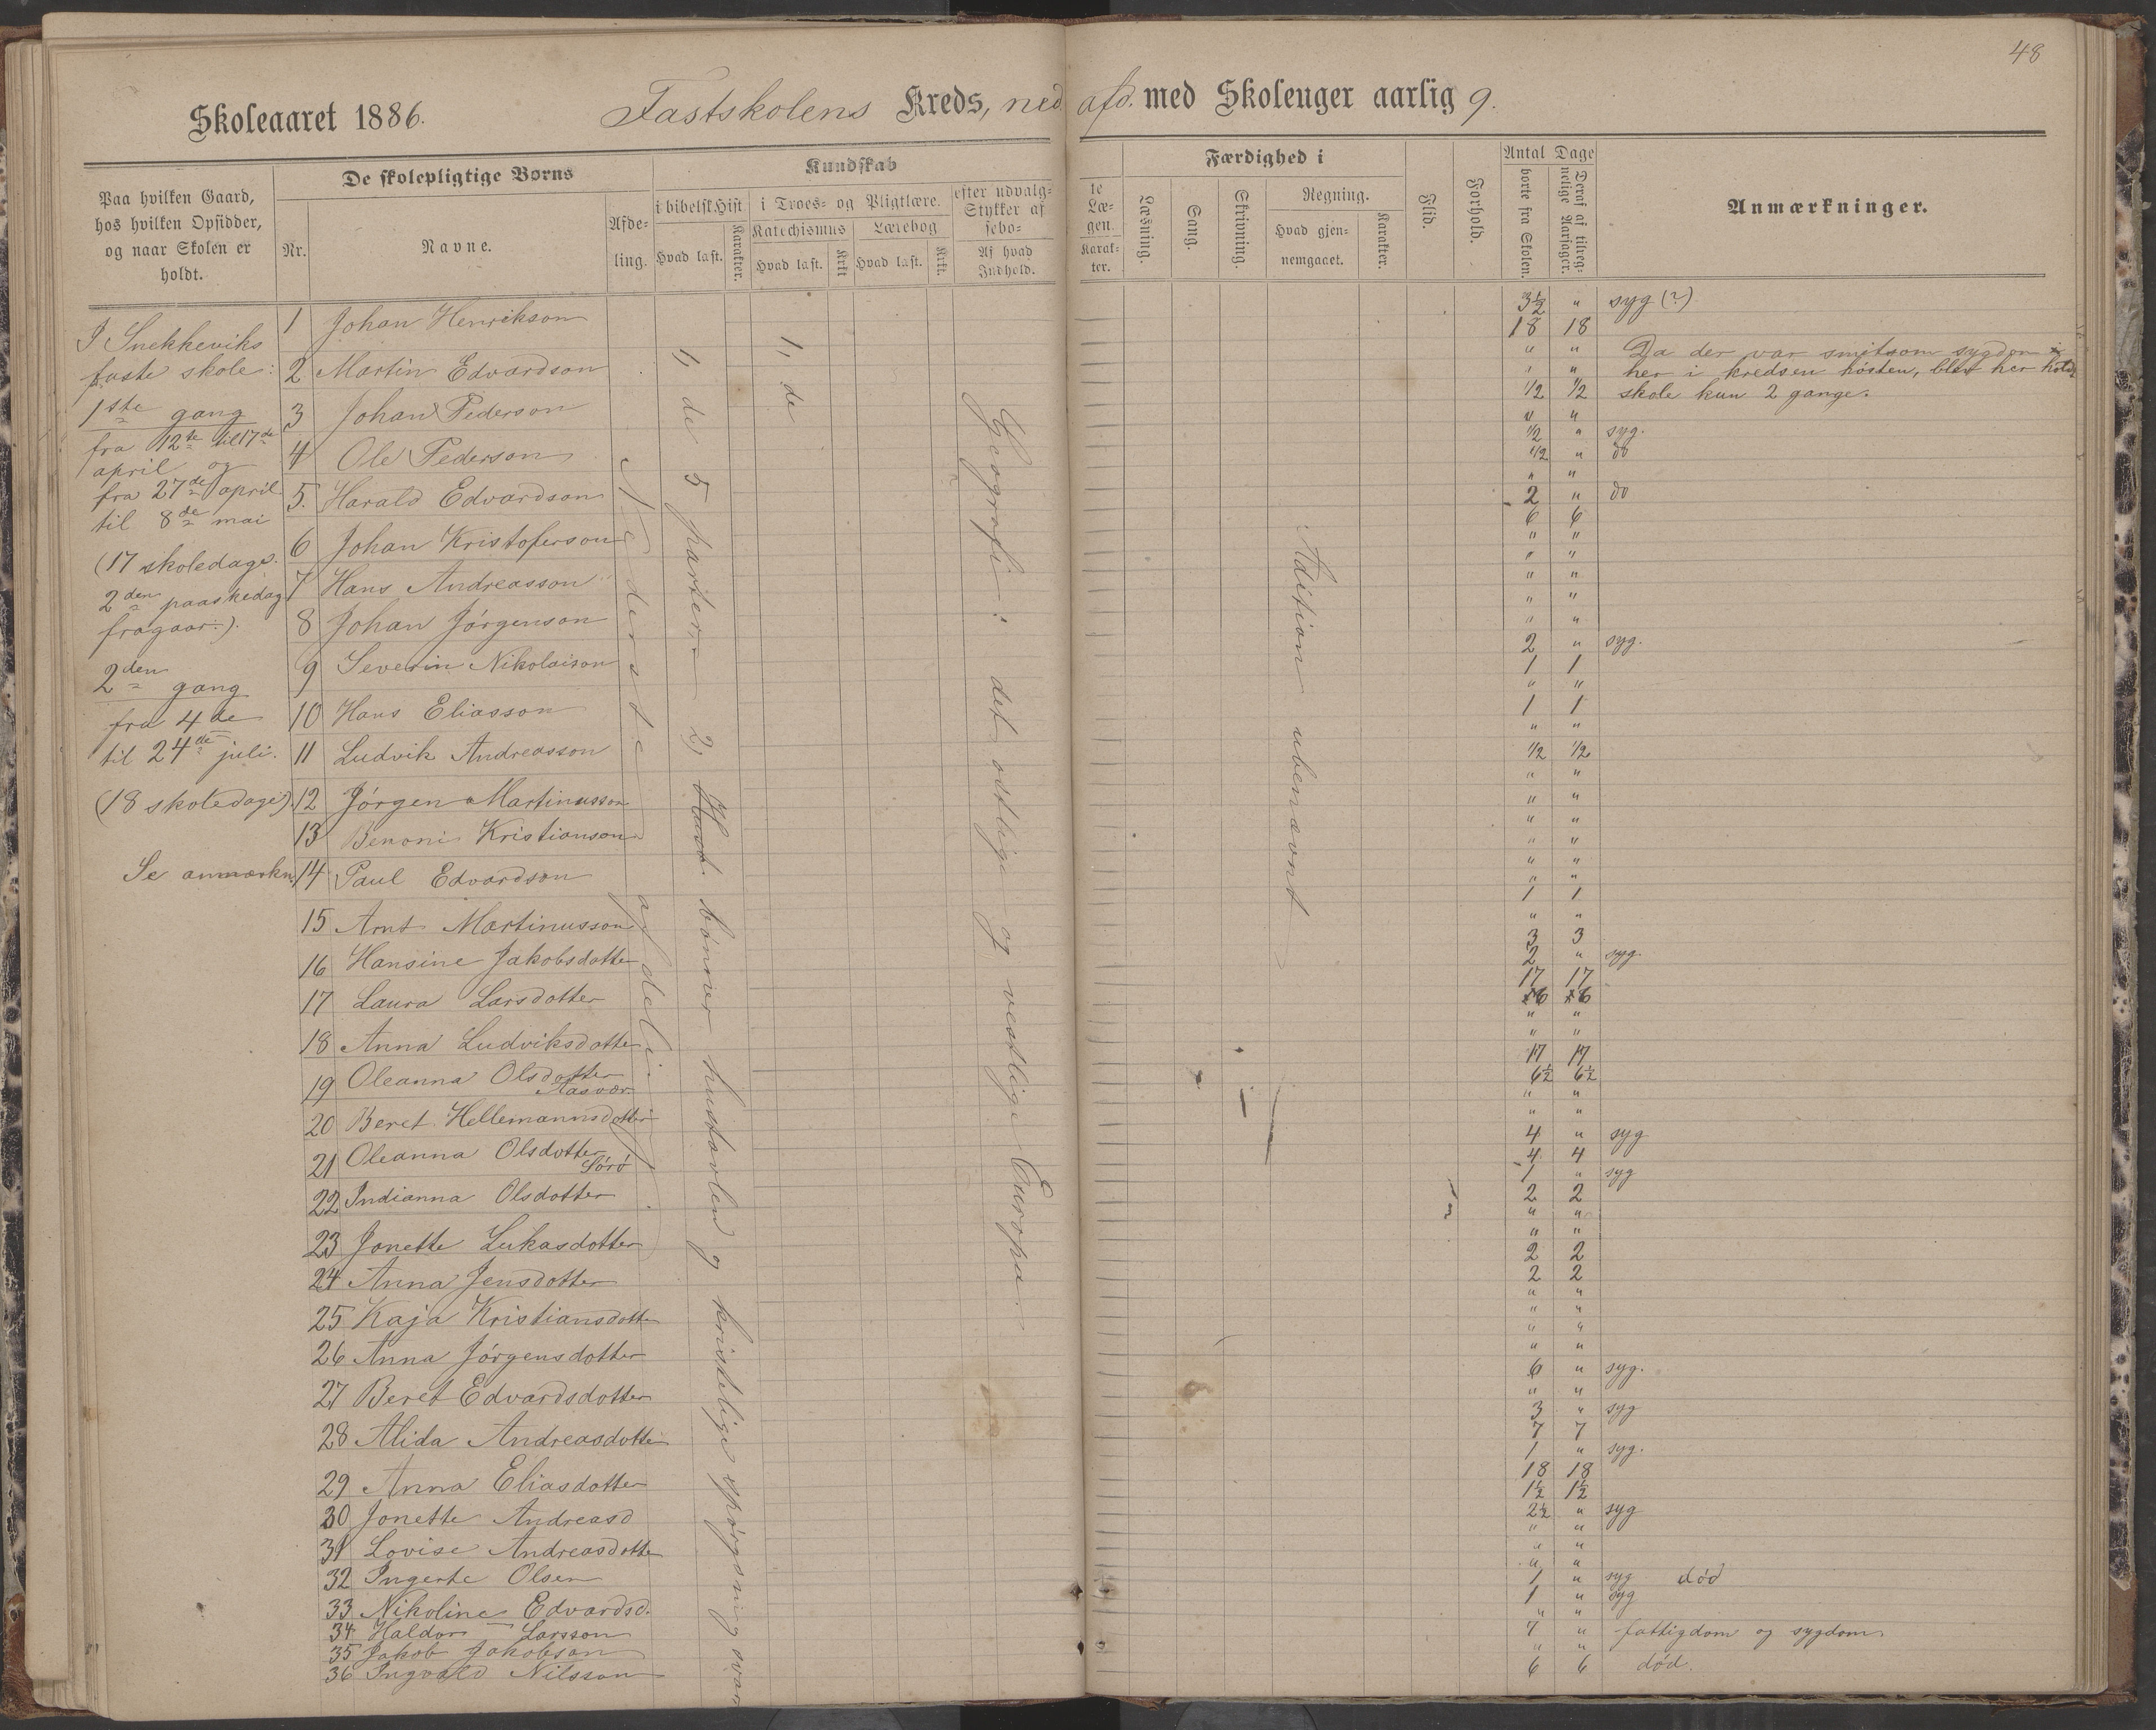 48
Skoleaaret 1886. Fastskolens Kreds, ned. afd. med Skoleuger aarlig 9.
Paa hvilken Gaard, hos hvilken Opsidder, og naar Skolen er holdt.
De skolepligtige Børns
Nr.
Navne.
Afde-
ling.
Kundskab
i bibelsk Hist
Hvad læst.
Karakter.
i Troes- og Pligtlære.
Katechismus
Hvad læst.
Krkt
Lærebog
Hvad læst.
Krkt.
efter udvalg-
Stykker af
sebo-
Af hvad
Indhold.
te
Læ-
gen.
Karak-
ter.
Færdighed i
Læsning.
Sang.
Skrivning.
Regning.
Hvad gjen-
nemgaaet.
Karakter.
Flid.
Forhold.
Antal Dage
borte fra Skolen.
Deraf af tilreg-
nelige Aarsager.
Anmærkninger.
I Snekkeviks
faste skole:
1ste gang
fra 12te til 17de
april og
fra 27de april
til 8de mai
(17 skoledage.
2den paaskedag
fragaar.).
2den gang
fra 4de
til 24de juli.
(18 skoledage).
Se anmærkn.
1 Johan Henrikson
2 Martin Edvardson
3 Johan Pederson
4 Ole Pederson
5. Harald Edvardson
6 Johan Kristoferson
7 Hans Andreasson
8 Johan Jörgenson
9 Severin Nikolaison
10 Hans Eliasson
11 Ludvik Andreasson
12 Jörgen Martinusson
13 Benoni Kristianson
14 Paul Edvardson
15 Arnt Martinusson
16 Hansine Jakobsdotter
17 Laura Larsdotter
18 Anna Ludviksdotter
19 Oleanna Olsdotter
Aasvær
20 Beret Hellemannsdotter
21 Oleanna Olsdotter
Sörö
22 Indianna Olsdotter
23 Jonette Lukasdotter
24 Anna Jensdotter
25 Kaja Kristiansdotter
26 Anna Jörgensdotter
27 Beret Edvardsdotter
28 Alida Andreasdotter
29 Anna Eliasdotter
30 Jonette Andreasd
31 Lovise Andreasdotter
32 Ingerte Olsen
33 Nikoline Edvardsd.
34 Haldor Larsson
35 Jakob Jakobson
36 Ingvald Nilsson
Nederste afdeling.
1, de 5 parter 2, bönner hustavlen og kristelige spörgsmaal svar
1, de
Geografi: det östlige og vestlige Europa.
Adition ubenævnt
3½ " syg (?)
18 18
" " Da der var smitsom sygdom
" " her i kredsen hösten, blev her holdt
½ ½ skole kun 2 gange.
" "
½ " syg.
½ " do
" "
2 " do
6 6
" "
" "
" "
" "
" "
2 " syg.
1 1
" "
1 1
" "
½ ½
" "
" "
" "
" "
" "
" "
1 1
" "
3 3
2 " syg.
17 17
6 6
" "
" "
17 17
6½ 6½
" "
" "
4 " syg
4 4
1 " syg
2 2
" "
" "
2 2
2 2
" "
" "
" "
" "
6 " syg.
" "
3 " syg
7 7
1 " syg.
18 18
1½ 1½
2½ " syg
" "
" "
" "
1 " syg död
1 " syg
" "
7 " fattigdom og sygdom
" "
6 6 död.